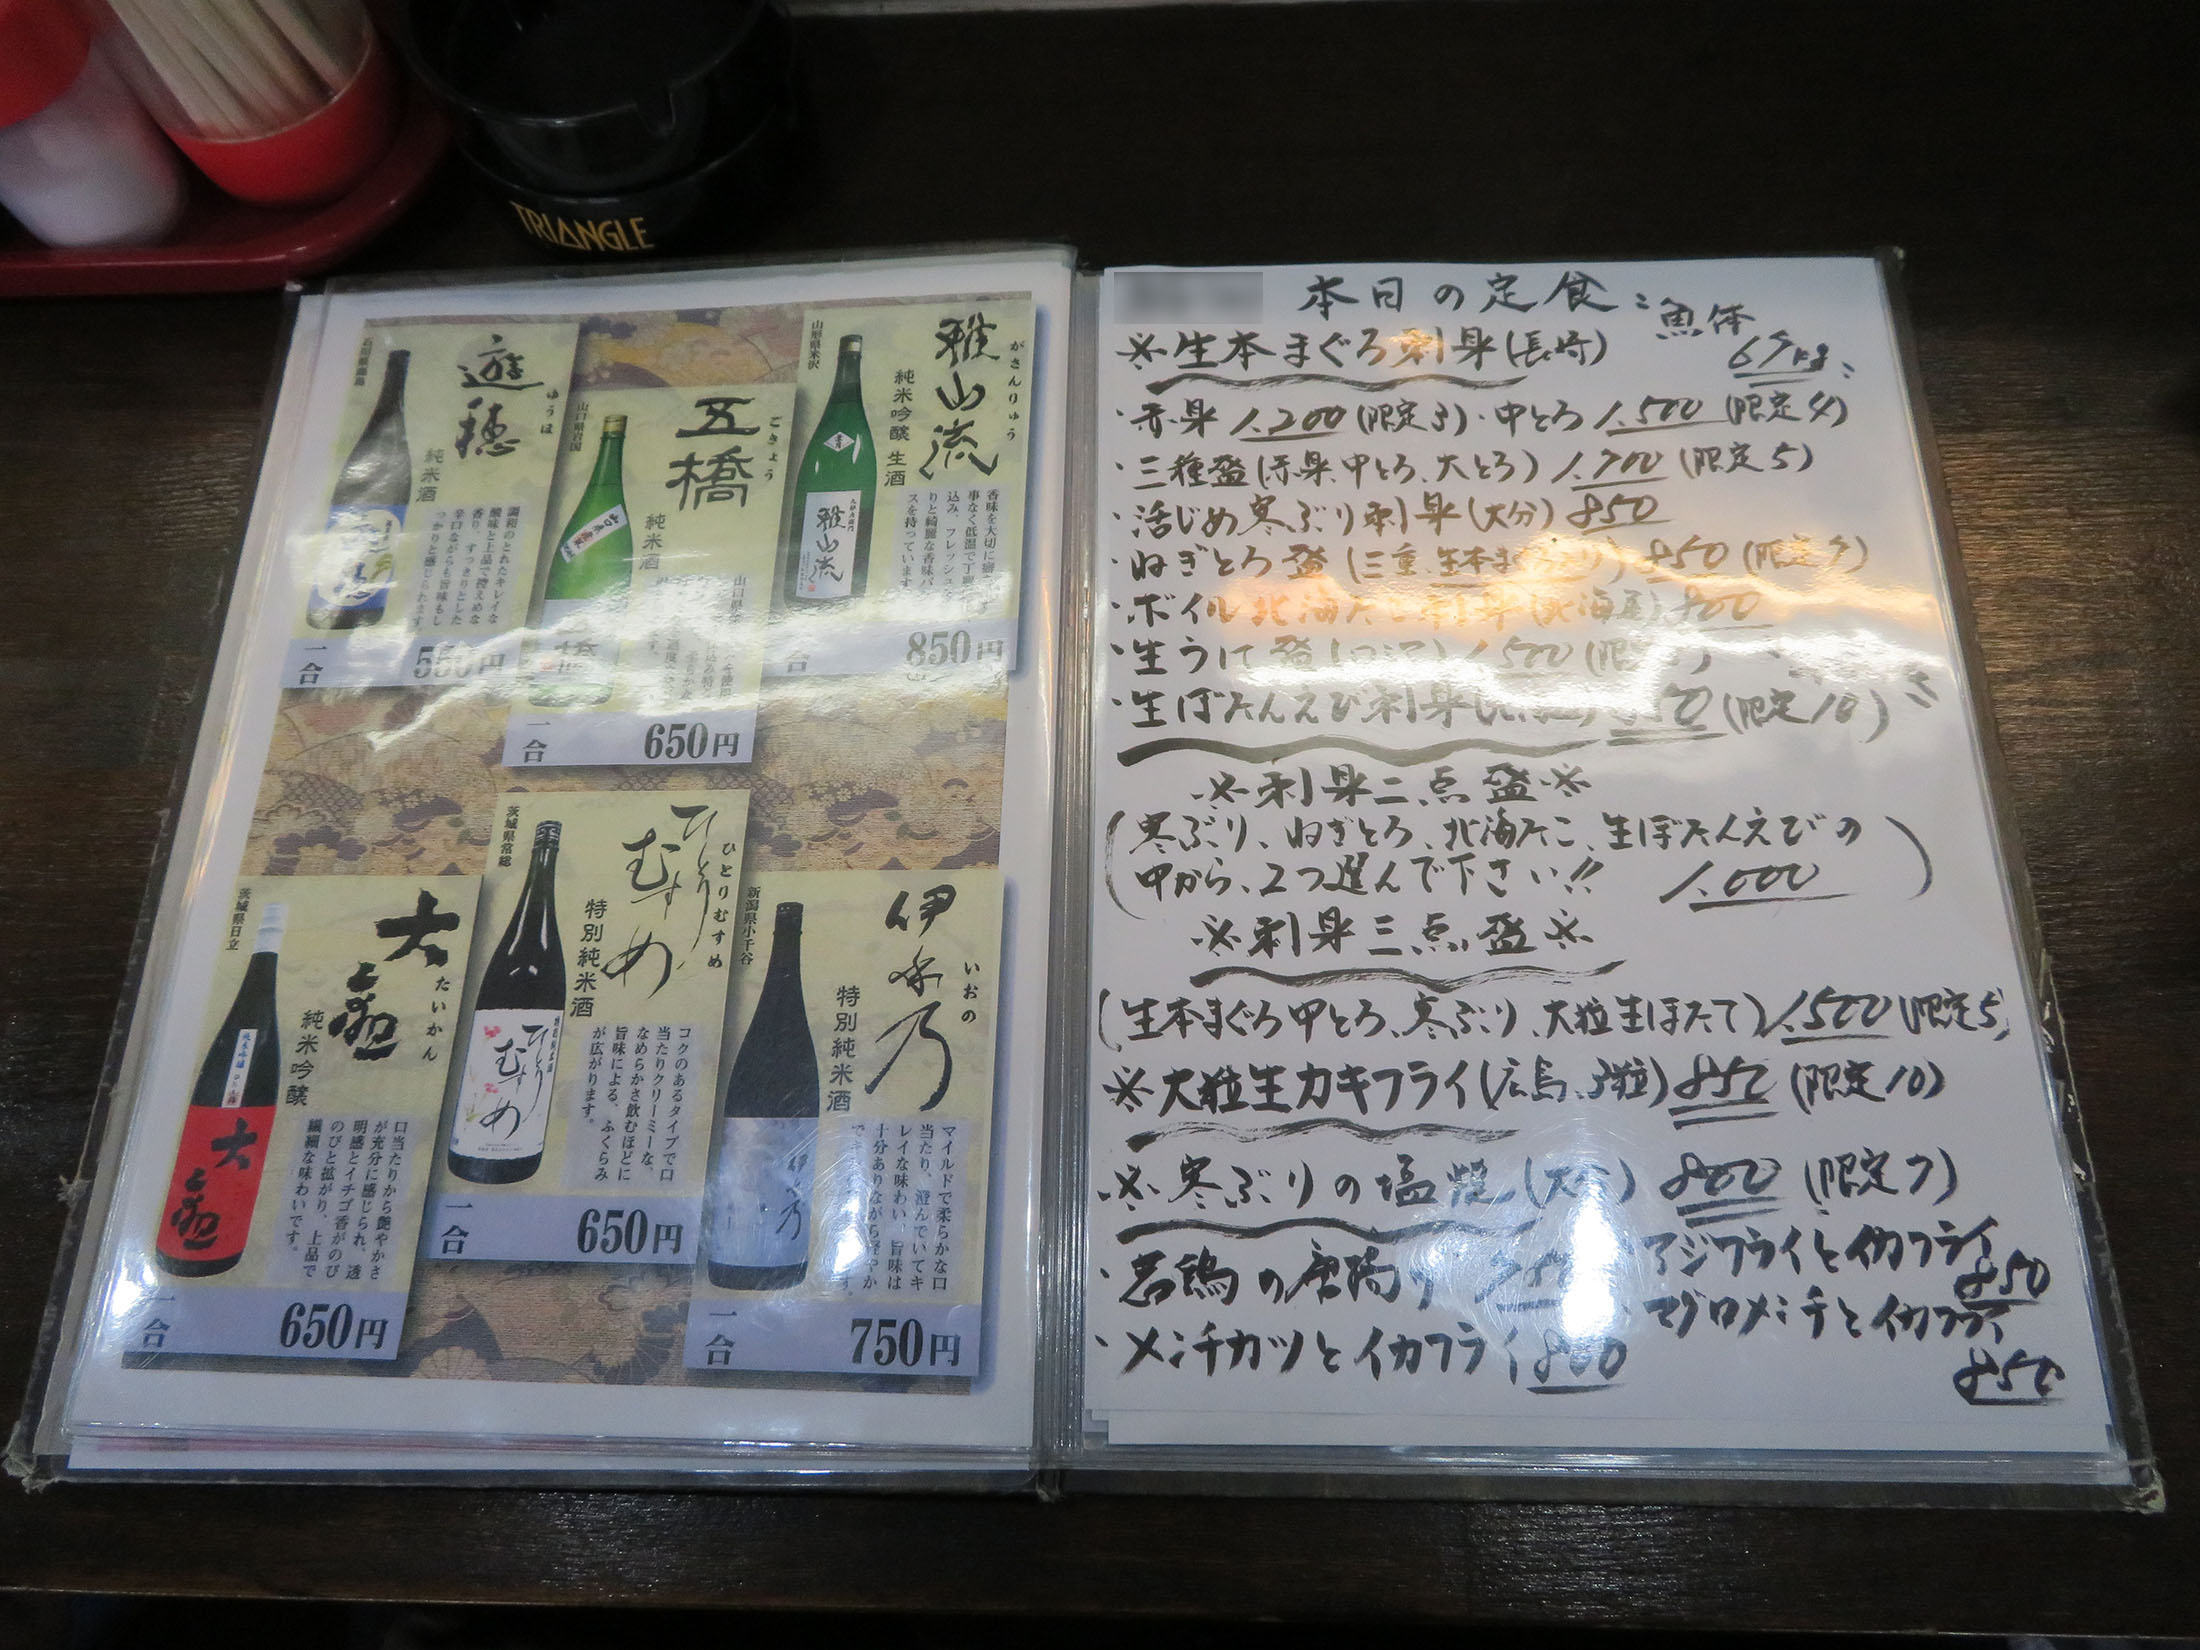 TRIANGLE
遊穂
ゆうほ
純米酒
調和のとれたキレイな
酸味と上品で控えめな
香り、すっきりとした
辛口ながらも旨味もし
っかりと感じられます。
一合
550円
山口県岩国
五橋
ごきょう
純米酒
一合
650円
山形県米沢
雅山流
がさんりゅう
純米吟醸 生酒
香味を大切に
事なく低温で丁
込み、フレッシュ
りと綺麗な香味バ
スを持っています。
雅山流
合
850円
茨城県日立
大観
たいかん
純米吟醸
口当たりから艶やかさ
が充分に感じられ、透
明感とイチゴ香がのび
のびと拡がり、上品で
繊細な味わいです。
大観
一合
650円
茨城県常総
ひとりむすめ
ひとりむすめ
特別純米酒
コクのあるタイプで口
当たりクリーミーな、
なめらかさ飲むほどに
旨味による、ふくらみ
が広がります。
ひとりむすめ
一合
650円
新潟県小千谷
伊乎乃
いおの
特別純米酒
マイルドで柔らかな口
当たり、澄んでいてキ
レイな味わい、旨味は
十分ありながら軽やか
でキ
す。
伊乎乃
一合
750円
本日の定食:
魚体
67kg:
※生本まぐろ刺身(長崎)
・赤身 1,200 (限定3)・中とろ 1,500 (限定4)
・三種盛(赤身、中とろ、大とろ) 1,700 (限定5)
・活じめ寒ぶり刺身(大分) 850
・ねぎとろ盛(三重、生本まぐろ入り) 850 (限定7)
・ボイル北海たこ刺身(北海道) 800
・生うに盛 1,500
・生ぼたんえび刺身 (限定10)
※刺身二点盛※
(寒ぶり、ねぎとろ、北海たこ、生ぼたんえびの
中から、2つ選んで下さい!! 1,000)
※刺身三点盛※
(生本まぐろ中とろ、寒ぶり、大粒生ほたて) 1,500 (限定5)
※大粒生カキフライ(広島、3粒) 850 (限定10)
※寒ぶりの塩焼(大分) 800 (限定7)
・若鶏の唐揚げ 750
・アジフライとイカフライ 850
・メンチカツとイカフライ 800
・マグロメンチとイカフライ 850